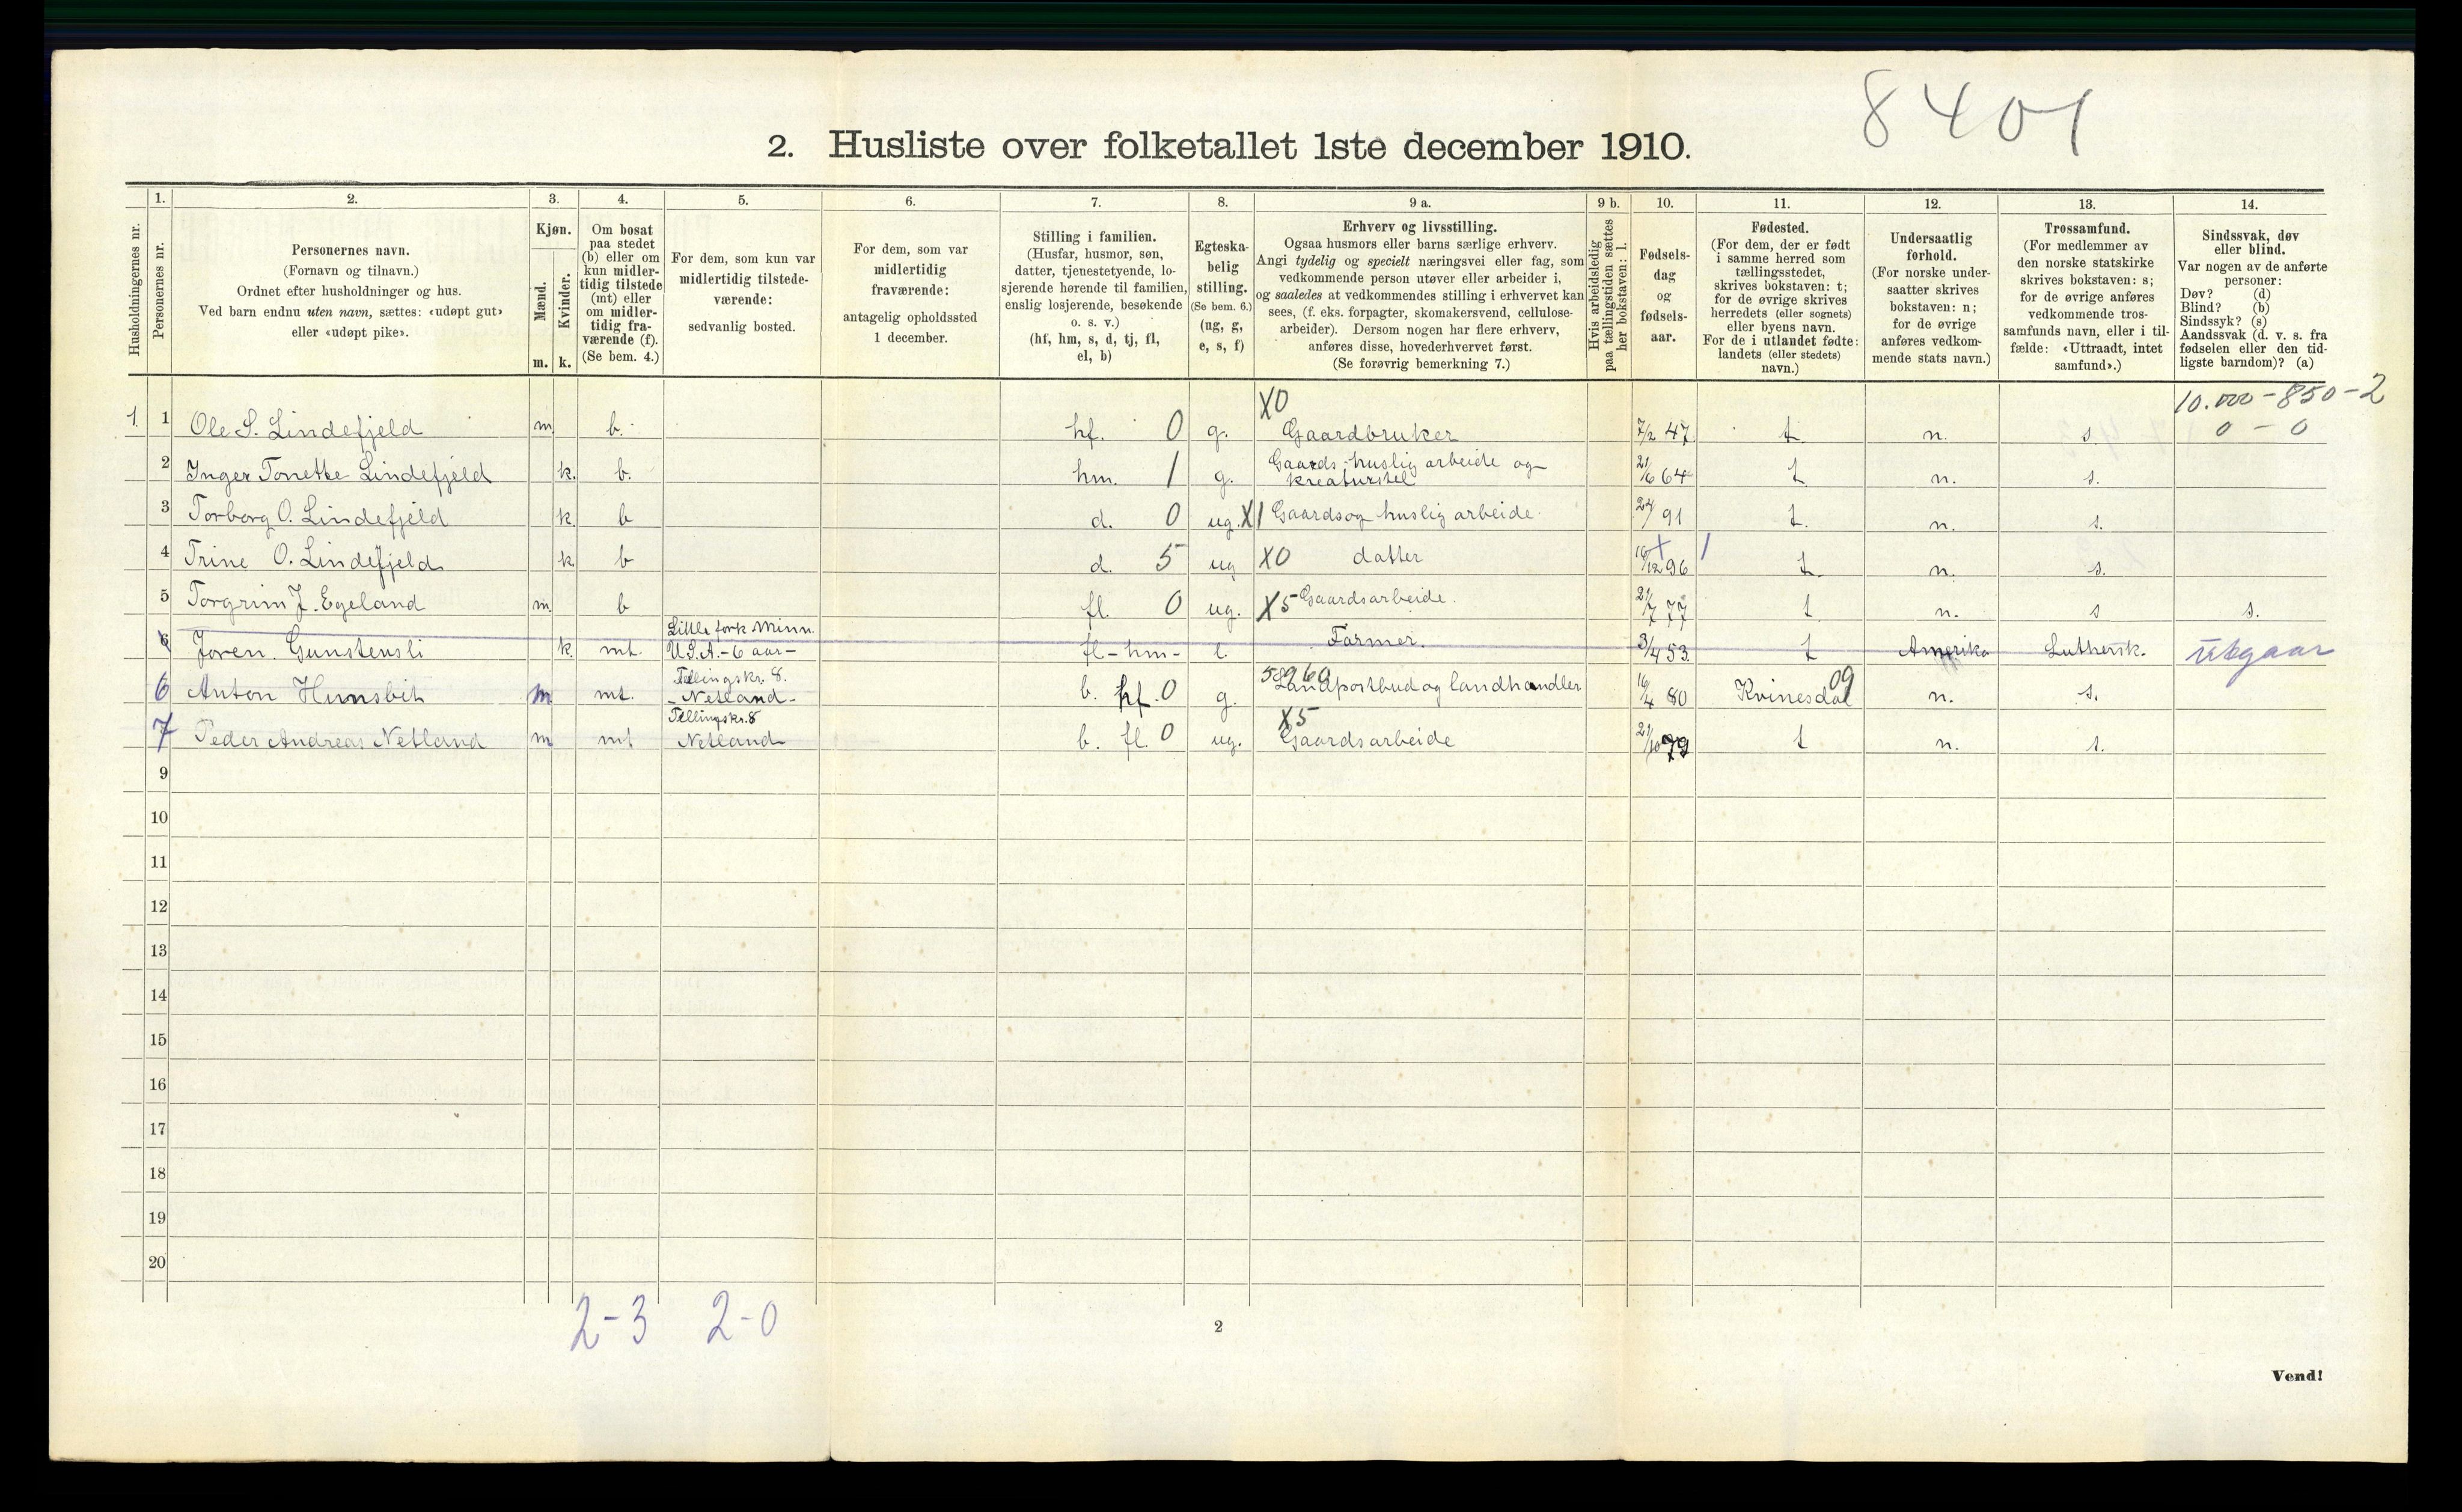 8401
2. Husliste over folketallet 1ste december 1910.
Husholdningernes nr.
1.
Personernes nr.
2.
Personernes navn.
(Fornavn og tilnavn.)
Ordnet efter husholdninger og hus.
Ved barn endnu uten navn, sættes: «udøpt gut»
eller «udøpt pike».
3.
Kjøn.
Mænd.
Kvinder.
m. k.
4.
Om bosat
paa stedet
(b) eller om
kun midler-
tidig tilstede
(mt) eller
om midler-
tidig fra-
værende (f).
(Se bem. 4.)
5.
For dem, som kun var
midlertidig tilstede-
værende:
sedvanlig bosted.
6.
For dem, som var
midlertidig
fraværende:
antagelig opholdssted
1 december.
7.
Stilling i familien.
(Husfar, husmor, søn,
datter, tjenestetyende, lo-
sjerende hørende til familien,
enslig losjerende, besøkende
o. s. v.)
(hf, hm, s, d, tj, fl,
el, b)
8.
Egteska-
belig
stilling.
(Se bem. 6.)
(ug, g,
e, s, f)
9 a.
Erhverv og livsstilling.
Ogsaa husmors eller barns særlige erhverv.
Angi tydelig og specielt næringsvei eller fag, som
vedkommende person utøver eller arbeider i,
og saaledes at vedkommendes stilling i erhvervet kan
sees, (f. eks. forpagter, skomakersvend, cellulose-
arbeider). Dersom nogen har flere erhverv,
anføres disse, hovederhvervet først.
(Se forøvrig bemerkning 7.)
9 b.
Hvis arbeidsledig
paa tællingstiden sættes
her bokstaven: l.
10.
Fødsels-
dag
og
fødsels-
aar.
11.
Fødested.
(For dem, der er født
i samme herred som
tællingsstedet,
skrives bokstaven: t;
for de øvrige skrives
herredets (eller sognets)
eller byens navn.
For de i utlandet fødte:
landets (eller stedets)
navn.)
12.
Undersaatlig
forhold.
(For norske under-
saatter skrives
bokstaven: n;
for de øvrige
anføres vedkom-
mende stats navn.)
13.
Trossamfund.
(For medlemmer av
den norske statskirke
skrives bokstaven: s;
for de øvrige anføres
vedkommende tros-
samfunds navn, eller i til-
fælde: «Uttraadt, intet
samfund».)
14.
Sindssvak, døv
eller blind.
Var nogen av de anførte
personer:
Døv? (d)
Blind? (b)
Sindssyk? (s)
Aandssvak (d. v. s. fra
fødselen eller den tid-
ligste barndom)? (a)
X0 10.000-850-2
1. 1 Ole S. Lindefjeld m b. hf. 0 g. Gaardbruker 7/2 47 t n. s. 0-0
2 Inger Tonette Lindefjeld k. b. hm. 1 g. Gaards-huslig arbeide og kreaturstel 21/6 64 t n. s.
3 Torborg O. Lindefjeld k. b d. 0 ug. X1 Gaards og huslig arbeide. 91 t. n. s.
4 Trine O. Lindefjeld k b d. 5 ug X0 datter 16/12 96 1 t. n. s.
5 Torgrim J. Egeland m. b fl. 0 ug. X5 Gaardsarbeide. 21/7 77 t n. s s.
6 Joren Gunstensli k. mt. Little fork Minn. U.S.A.-6 aar- fl-hm- Farmer. 3/4 53. t Amerika Luthersk. utgaar
6 Anton Hunsbit m mt. Tellingskr. 8. -Netland- b. hf. 0 g. Landpostbud og landhandler 16/4 80 Kvinesdal 09 n. s.
7 Peder Andreas Netland m mt Tellingskr. 8 Netland b. fl. 0 ug. X5 Gaardsarbeide 21/10 79 t n. s.
9
10
11
12
13
14
15
16
17
18
19
20
2-3 2-0
2
Vend!